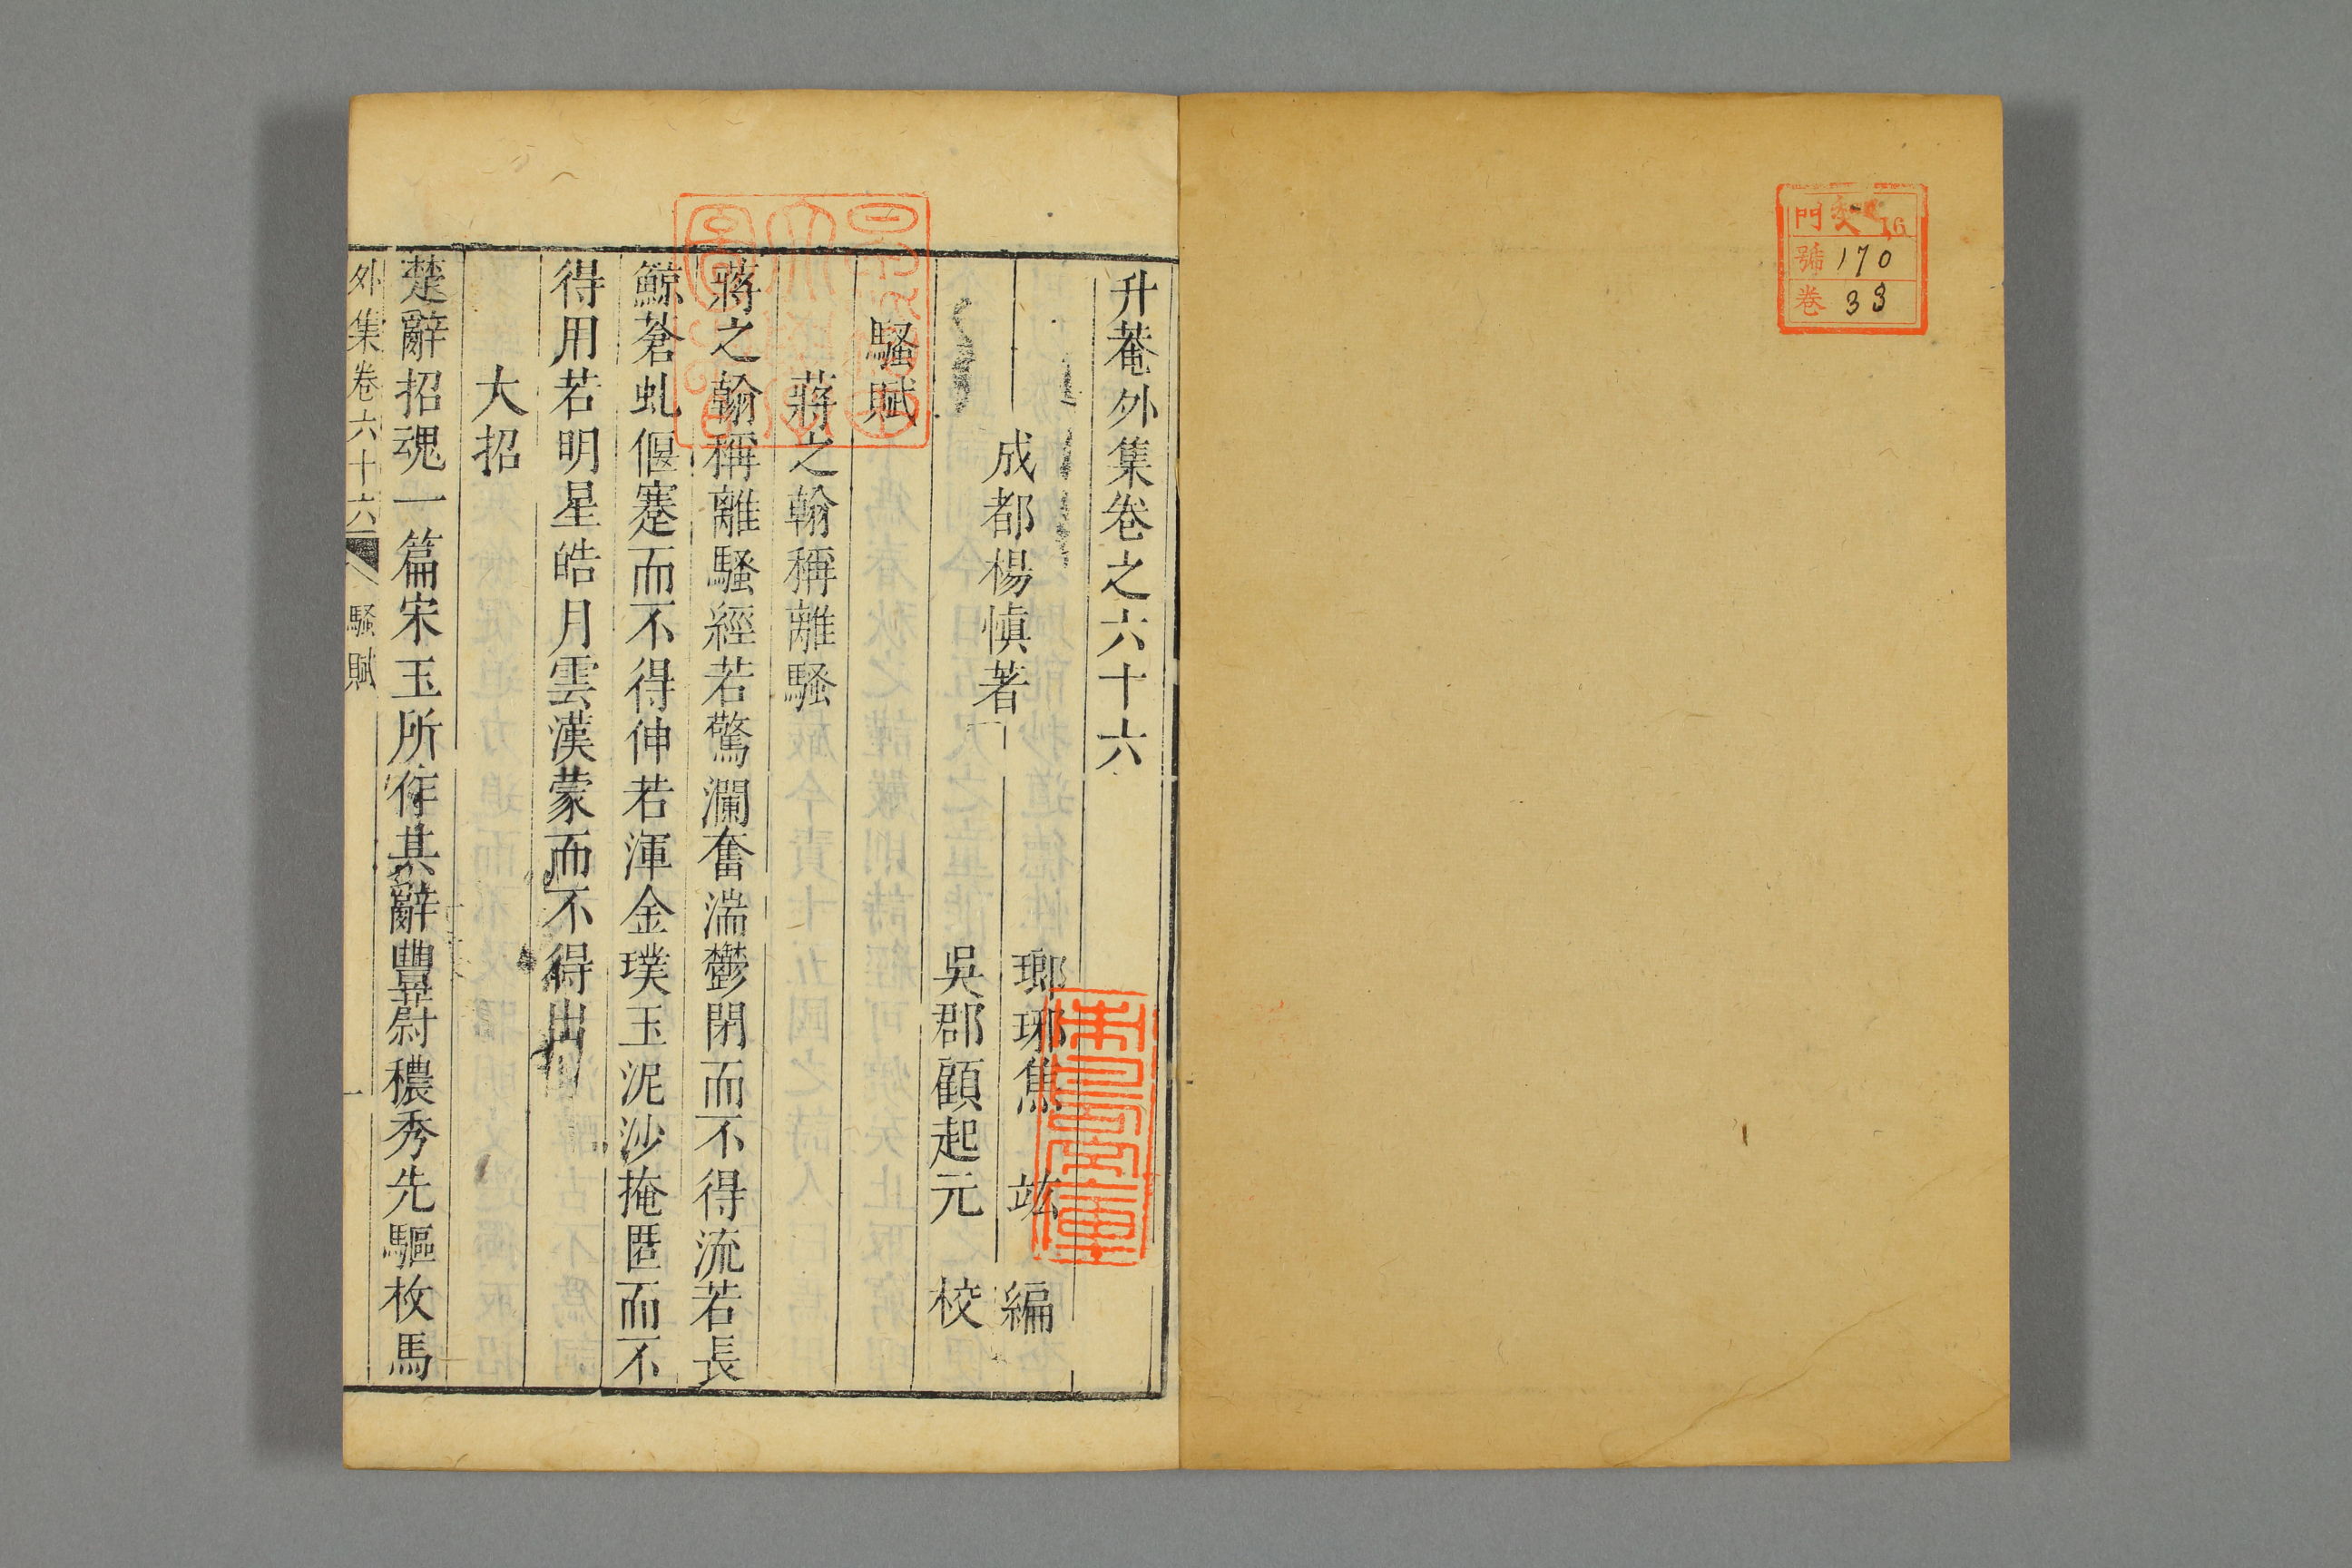 門 文 16
號 170
卷 33
升菴外集卷之六十六
成都楊慎著
瑯琊焦竑編
吳郡顧起元校
騷賦
蔣之翰稱離騷
蔣之翰稱離騷經若驚瀾奮湍鬱閉而不得流若長
鯨蒼虬偃蹇而不得伸若渾金璞玉泥沙掩匿而不
得用若明星皓月雲漢蒙而不得出
大招
楚辭招魂一篇宋玉所作其辭豐蔚穠秀先驅枚馬
外集卷六十六 騷賦 一